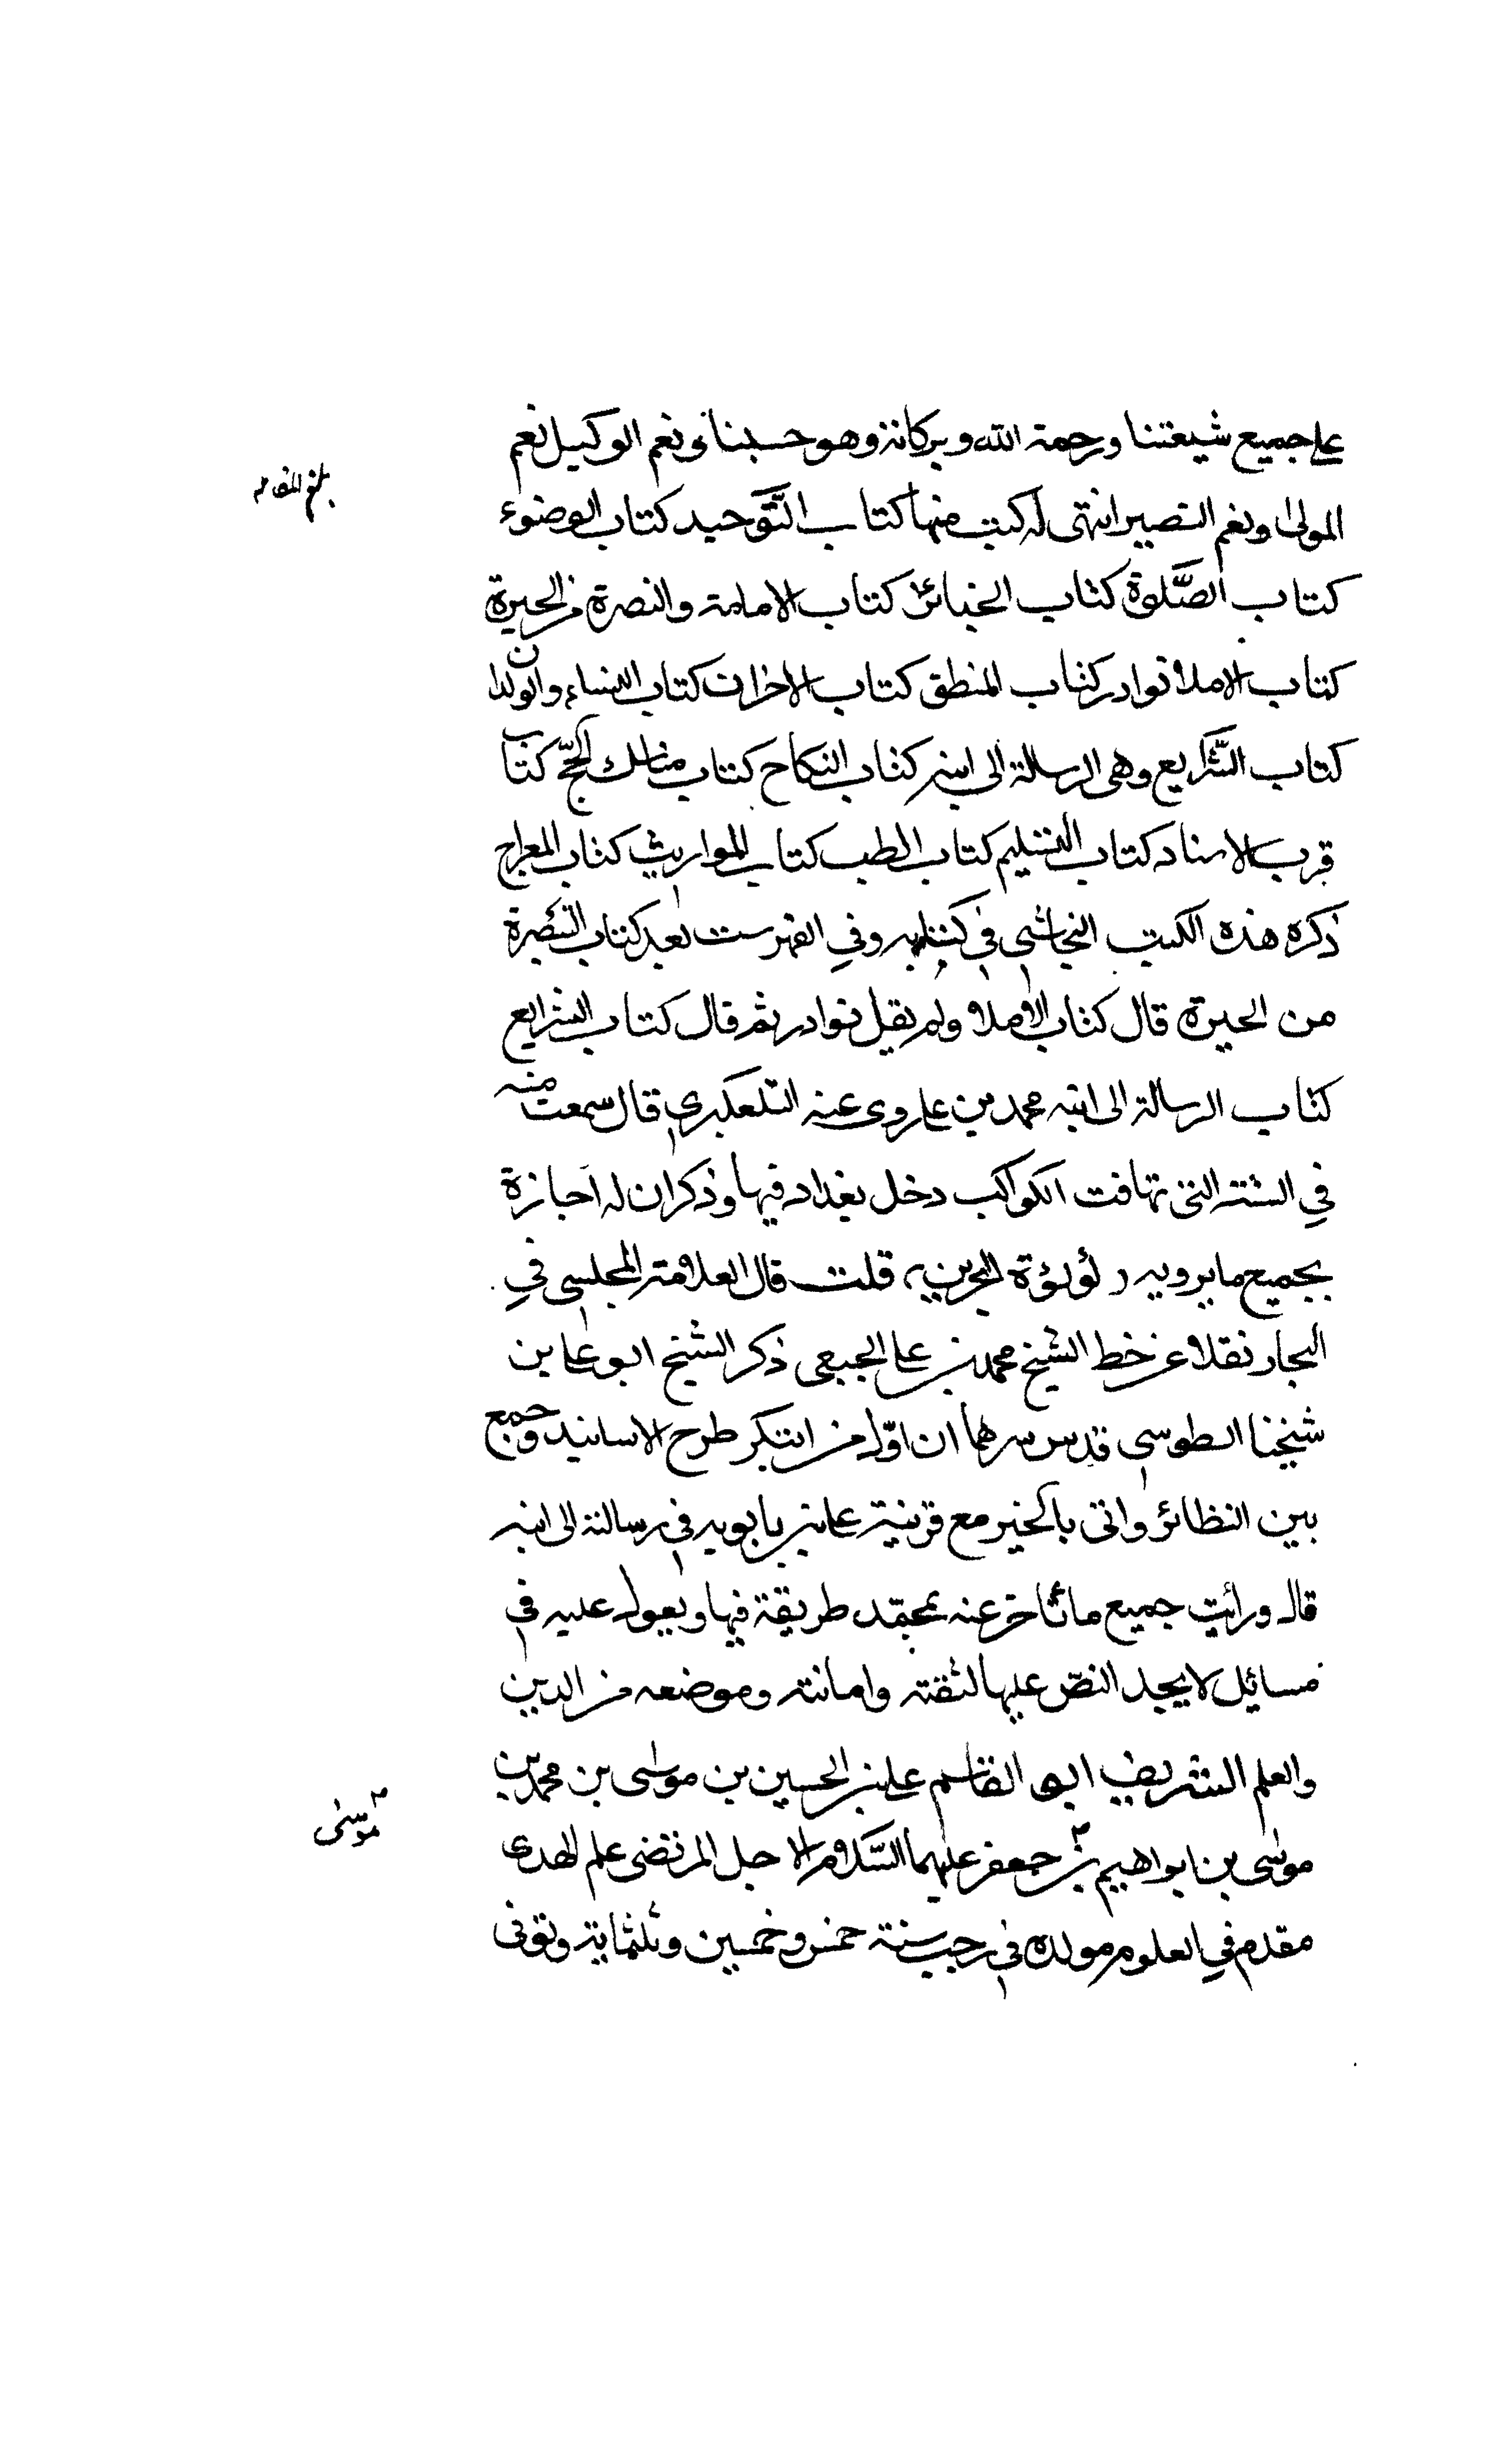 على جميع شيعتنا ورحمة الله وبركاته وهو حسبنا ونعم الوكيل نعم
المولى ونعم النصير انتهى له كتب منها كتاب التَّوحيد كتاب الوضوء
كتاب الصَّلوة كتاب الجنائز كتاب الامامة والتبصرة من الحيرة
كتاب الاملا نوادر كتاب المنطق كتاب الاخوان كتاب النساء والولدان
كتاب الشَّرايع وهى الرسالة الى ابنه كتاب النكاح كتاب مناسك الحجّ كتاب
قرب الاسناد كتاب التسليم كتاب الطب كتاب المواريث كتاب المعراج
ذكره هذه الكتب النجاشي في كتابه وفي الفهرست بعد كتاب التبصرة
من الحيرة قال كتاب الاملا ولم يقل نوادر ثم قال كتاب الشرايع
كتاب الرسالة الى ابنه محمد بن على روى عنه التلعكبري قال سمعت منه
في السنة التي تهافت الكواكب دخل بغداد فيها وذكر ان له اجازة
بجميع ما يرويه لؤلؤة البحرين قلت قال العلامة المجلسي في
البحار نقلا عن خط الشيخ محمد بن على الجبعى ذكر الشيخ ابو على بن
شيخنا الطوسي قدس سرهما ان اوّل من ابتكر طرح الاسانيد وجمع
بين النظائر واتى بالخبر مع قرينه على بن بابويه في رسالته الى ابنه
قال ورأيت جميع ما تأخر عنه يحمد طريقه فيها ويعول عليه في
مسائل لا يجد النصّ عليها لثقته وامانته وموضعه من الدين
والعلم الشريف ابو القاسم على بن الحسين بن موسى بن محمد بن
موسى بن ابراهيم بن جعفر عليهما السَّلام الاجل المرتضى علم الهدى
مقدم في العلوم مولده في رجب سنة خمس وخمسين وثلثماية وتوفى
موسى